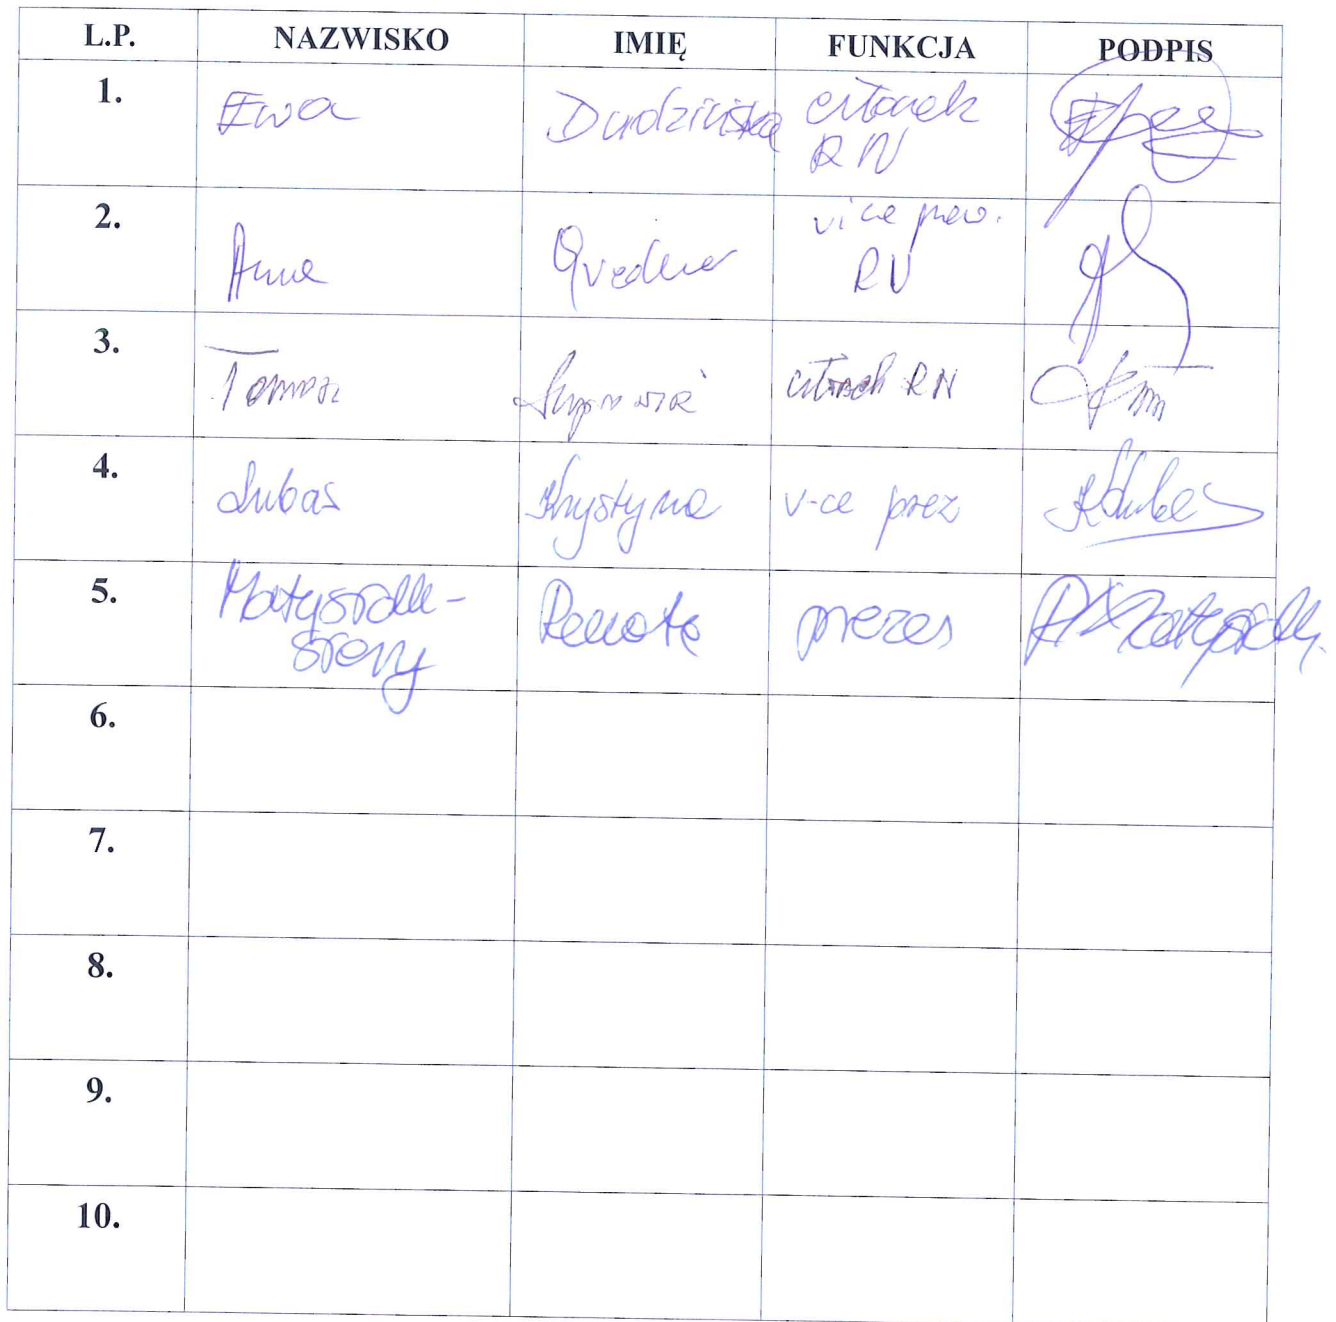 L.P. NAZWISKO IMIĘ FUNKCJA PODPIS
1. Ewa Dudzińska członek
RN
2. Anna vice prew.
RN
3. Tomasz członek RN
4. Lubaś Krystyna v-ce prez
5. Matysiak- Renata prezes
6.
7.
8.
9.
10.